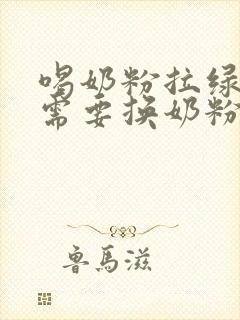 喝奶粉拉绿
需要换奶粉
鲁馬滋